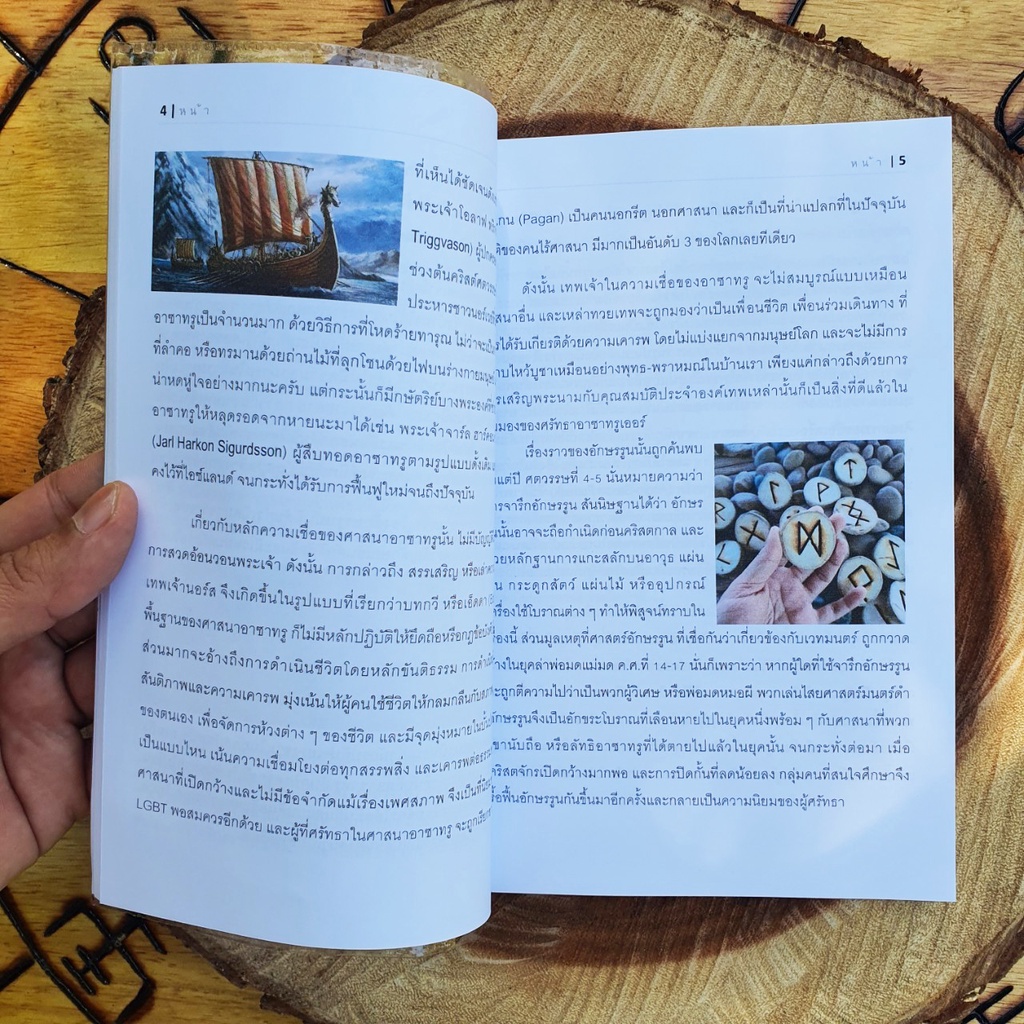 4 | หน้า
ที่เห็นได้ชัดเจน
พระเจ้าโอลาฟ
Triggvason)
ช่วงต้นคริสต์ศตวรรษ
ประหารชาวนอร์ส
อาซาทรูเป็นจำนวนมาก ด้วยวิธีการที่โหดร้ายทารุณ ไม่ว่าจะ
ที่ลำคอ หรือทรมานด้วยถ่านไม้ที่ลุกโชนด้วยไฟบนร่างกายมนุษย์
น่าหดหู่ใจอย่างมากนะครับ แต่กระนั้นก็มีกษัตริย์บางพระองค์
อาซาทรูให้หลุดรอดจากหายนะมาได้เช่น พระเจ้าจาร์ล
(Jarl Harkon Sigurdsson) ผู้สืบทอดอาซาทรูตามรูปแบบดั้งเดิม
คงไว้ที่ไอซ์แลนด์ จนกระทั่งได้รับการฟื้นฟูใหม่จนถึงปัจจุบัน
เกี่ยวกับหลักความเชื่อของศาสนาอาซาทรูนั้น ไม่มี
การสวดอ้อนวอนพระเจ้า ดังนั้น การกล่าวถึง สรรเสริญ
เทพเจ้านอร์ส จึงเกิดขึ้นในรูปแบบที่เรียกว่าบทกวี หรือเอ็ดดา
พื้นฐานของศาสนาอาซาทรู ก็ไม่มีหลักปฏิบัติให้ยึดถือหรือกฎ
ส่วนมากจะอ้างถึงการดำเนินชีวิตโดยหลักขันติธรรม
สันติภาพและความเคารพ มุ่งเน้นให้ผู้คนใช้ชีวิตให้กลมกลืนกับ
ของตนเอง เพื่อจัดการห้วงต่าง ๆ ของชีวิต และมีจุดมุ่งหมายใน
เป็นแบบไหน เน้นความเชื่อมโยงต่อทุกสรรพสิ่ง และเคารพต่อ
ศาสนาที่เปิดกว้างและไม่มีข้อจำกัดแม้เรื่องเพศสภาพ จึงเป็นที่
LGBT พอสมควรอีกด้วย และผู้ที่ศรัทธาในศาสนาอาซาทรู จะถูกเรียก
หน้า | 5
(Pagan) เป็นคนนอกรีต นอกศาสนา และก็เป็นที่น่าแปลกที่ในปัจจุบัน
ของคนไร้ศาสนา มีมากเป็นอันดับ 3 ของโลกเลยทีเดียว
ดังนั้น เทพเจ้าในความเชื่อของอาซาทรู จะไม่สมบูรณ์แบบเหมือน
อื่น และเหล่าทวยเทพจะถูกมองว่าเป็นเพื่อนชีวิต เพื่อนร่วมเดินทาง ที่
ได้รับเกียรติด้วยความเคารพ โดยไม่แบ่งแยกจากมนุษย์โลก และจะไม่มีการ
ไหว้บูชาเหมือนอย่างพุทธ-พราหมณ์ในบ้านเรา เพียงแค่กล่าวถึงด้วยการ
เสริญพระนามกับคุณสมบัติประจำองค์เทพเหล่านั้นก็เป็นสิ่งที่ดีแล้วใน
มองของศรัทธาอาซาทรูเออร์
เรื่องราวของอักษรรูนนั้นถูกค้นพบ
แต่ปี ศตวรรษที่ 4-5 นั่นหมายความว่า
จารึกอักษรรูน สันนิษฐานได้ว่า อักษร
นั้นอาจจะถือกำเนิดก่อนคริสตกาล และ
หลักฐานการแกะสลักบนอาวุธ แผ่น
กระดูกสัตว์ แผ่นไม้ หรืออุปกรณ์
ใช้โบราณต่าง ๆ ทำให้พิสูจน์ทราบใน
นี้ ส่วนมูลเหตุที่ศาสตร์อักษรรูน ที่เชื่อกันว่าเกี่ยวข้องกับเวทมนตร์ ถูกกวาด
ในยุคล่าพ่อมดแม่มด ค.ศ.ที่ 14-17 นั่นก็เพราะว่า หากผู้ใดที่ใช้จารึกอักษรรูน
ถูกตีความไปว่าเป็นพวกผู้วิเศษ หรือพ่อมดหมอผี พวกเล่นไสยศาสตร์มนตร์ดำ
อักษรรูนจึงเป็นอักขระโบราณที่เลือนหายไปในยุคหนึ่งพร้อม ๆ กับศาสนาที่พวก
นับถือ หรือลัทธิอาซาทรูที่ได้ตายไปแล้วในยุคนั้น จนกระทั่งต่อมา เมื่อ
คริสตจักรเปิดกว้างมากพอ และการปิดกั้นที่ลดน้อยลง กลุ่มคนที่สนใจศึกษาจึง
ฟื้นอักษรรูนกันขึ้นมาอีกครั้งและกลายเป็นความนิยมของผู้ศรัทธา